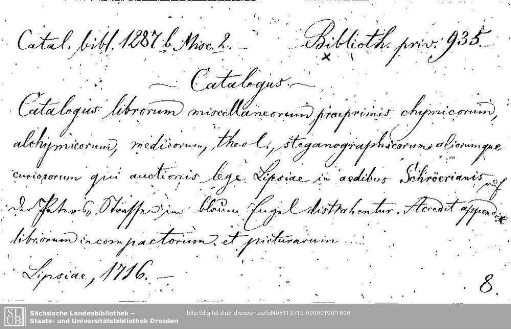 Catal. bibl. 1287 b. Misc. 2. Biblioth. priv. 935.
— Catalogus —
Catalogus librorum miscellaneorum praeprimis chymicorum,
alchymicorum, medicorum, theol., steganographicorum aliorumque
curiosorum qui auctionis lege Lipsiae in aedibus Schröerianis auf
d. im blauen Engel distrahentur. Accedit append.
librorum incompactorum et picturarum
Lipsiae, 1716. —
8.
Sächsische Landesbibliothek –
Staats- und Universitätsbibliothek Dresden